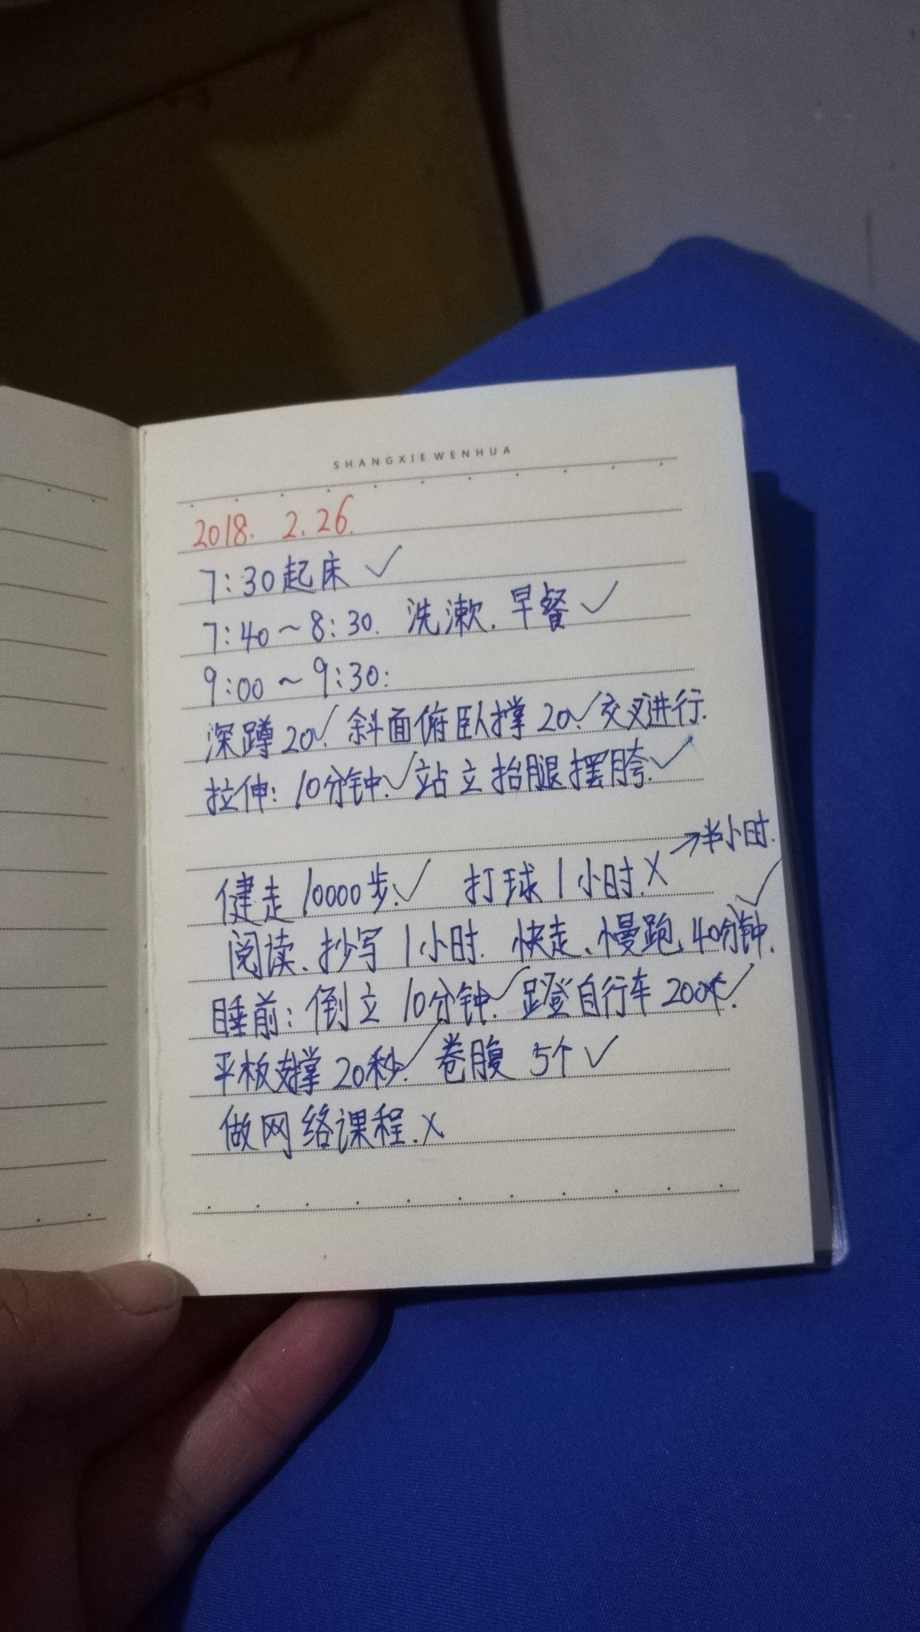 SHANGXIE WENHUA
2018. 2.26.
7:30起床 ✓
7:40~8:30. 洗漱. 早餐 ✓
9:00~9:30:
深蹲20.✓ 斜面俯卧撑20.✓交叉进行.
拉伸: 10分钟.✓站立抬腿摆胯.✓
→半小时.
健走10000步.✓ 打球1小时.X
阅读、抄写1小时. 快走、慢跑40分钟.✓
睡前: 倒立10分钟.✓蹬自行车200个.✓
平板支撑20秒.✓ 卷腹 5个✓
做网络课程.X